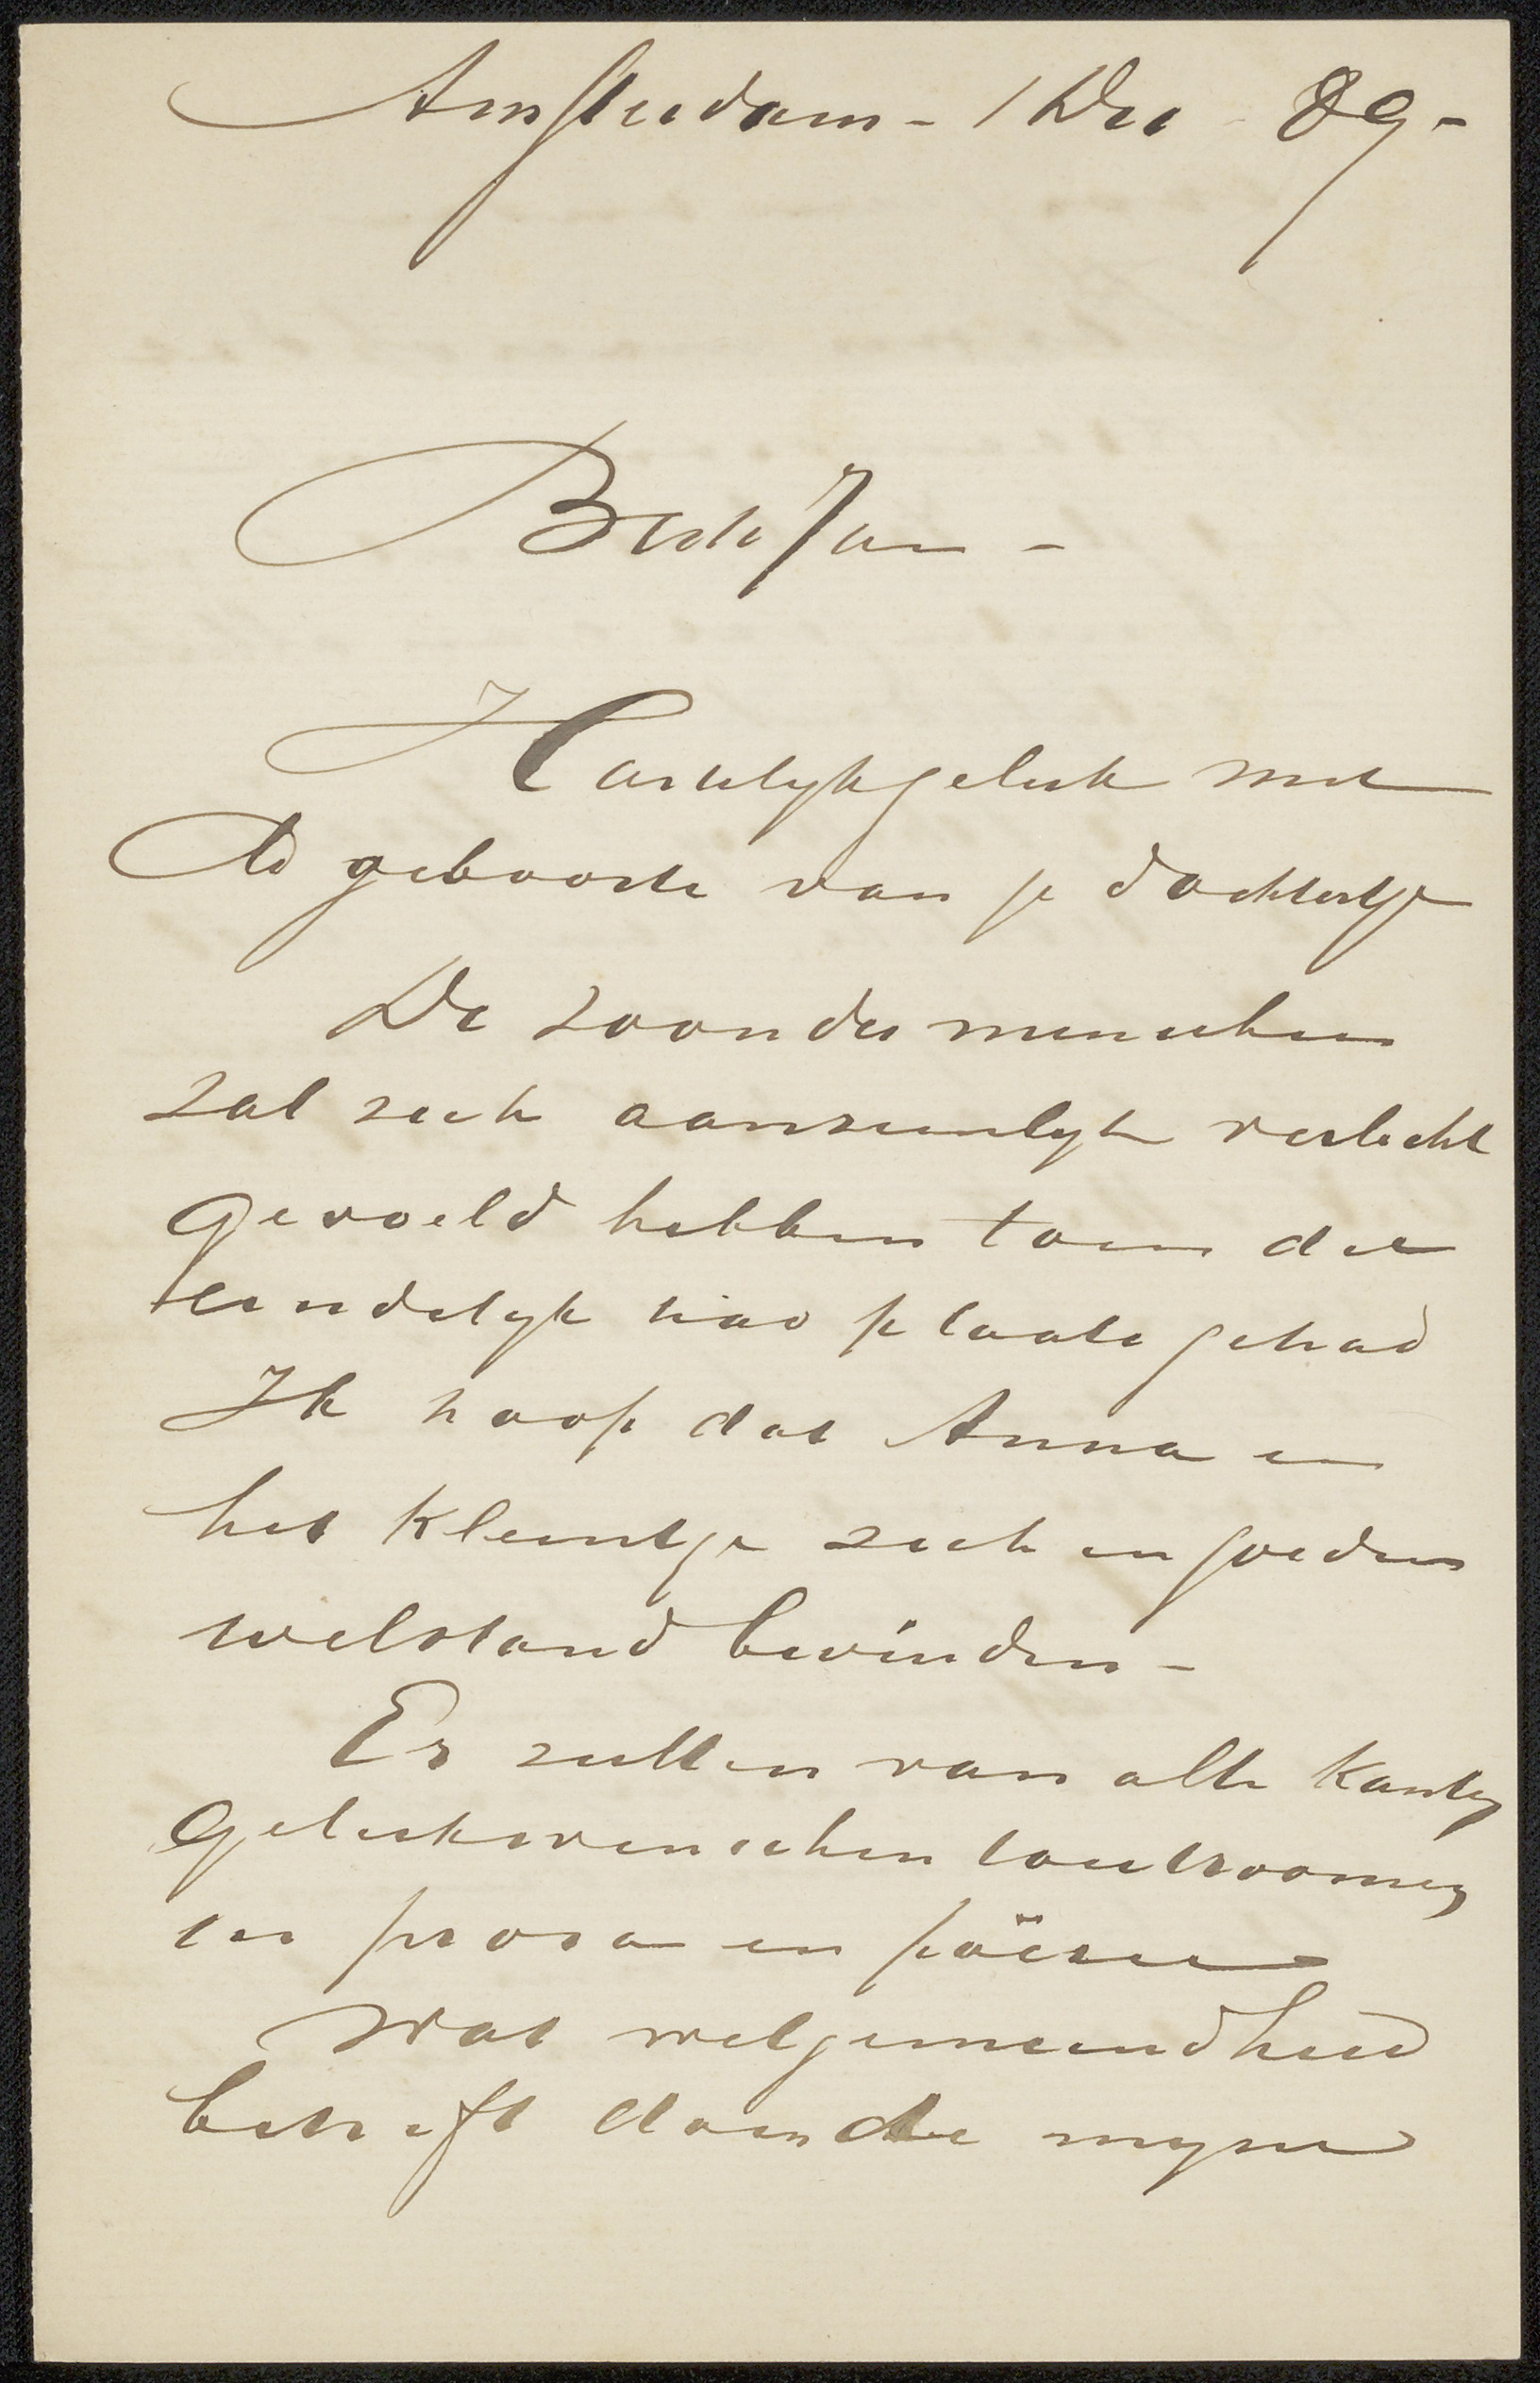 Amsterdam - 1 Dec 89 -
Beste Jan -
Hartelyk geluk met
de geboorte van je dochtertje
De zoon des menschen
zal zich aanzienlyk verlicht
gevoeld hebben toen die
eindelyk had plaats gehad
Ik hoop dat Anna en
het kleintje zich in goeden
welstand bevinden -
Er zullen van alle kanten
gelukwenschen toestroomen
in proza en poëzie
Wat welgemeendheid
betreft doen de myne